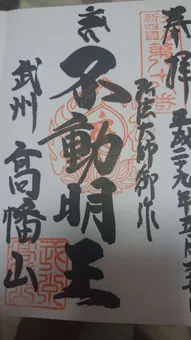 奉拝
平成二九年五月
新四國
弘法大師御作
不動明王
武州
高幡山